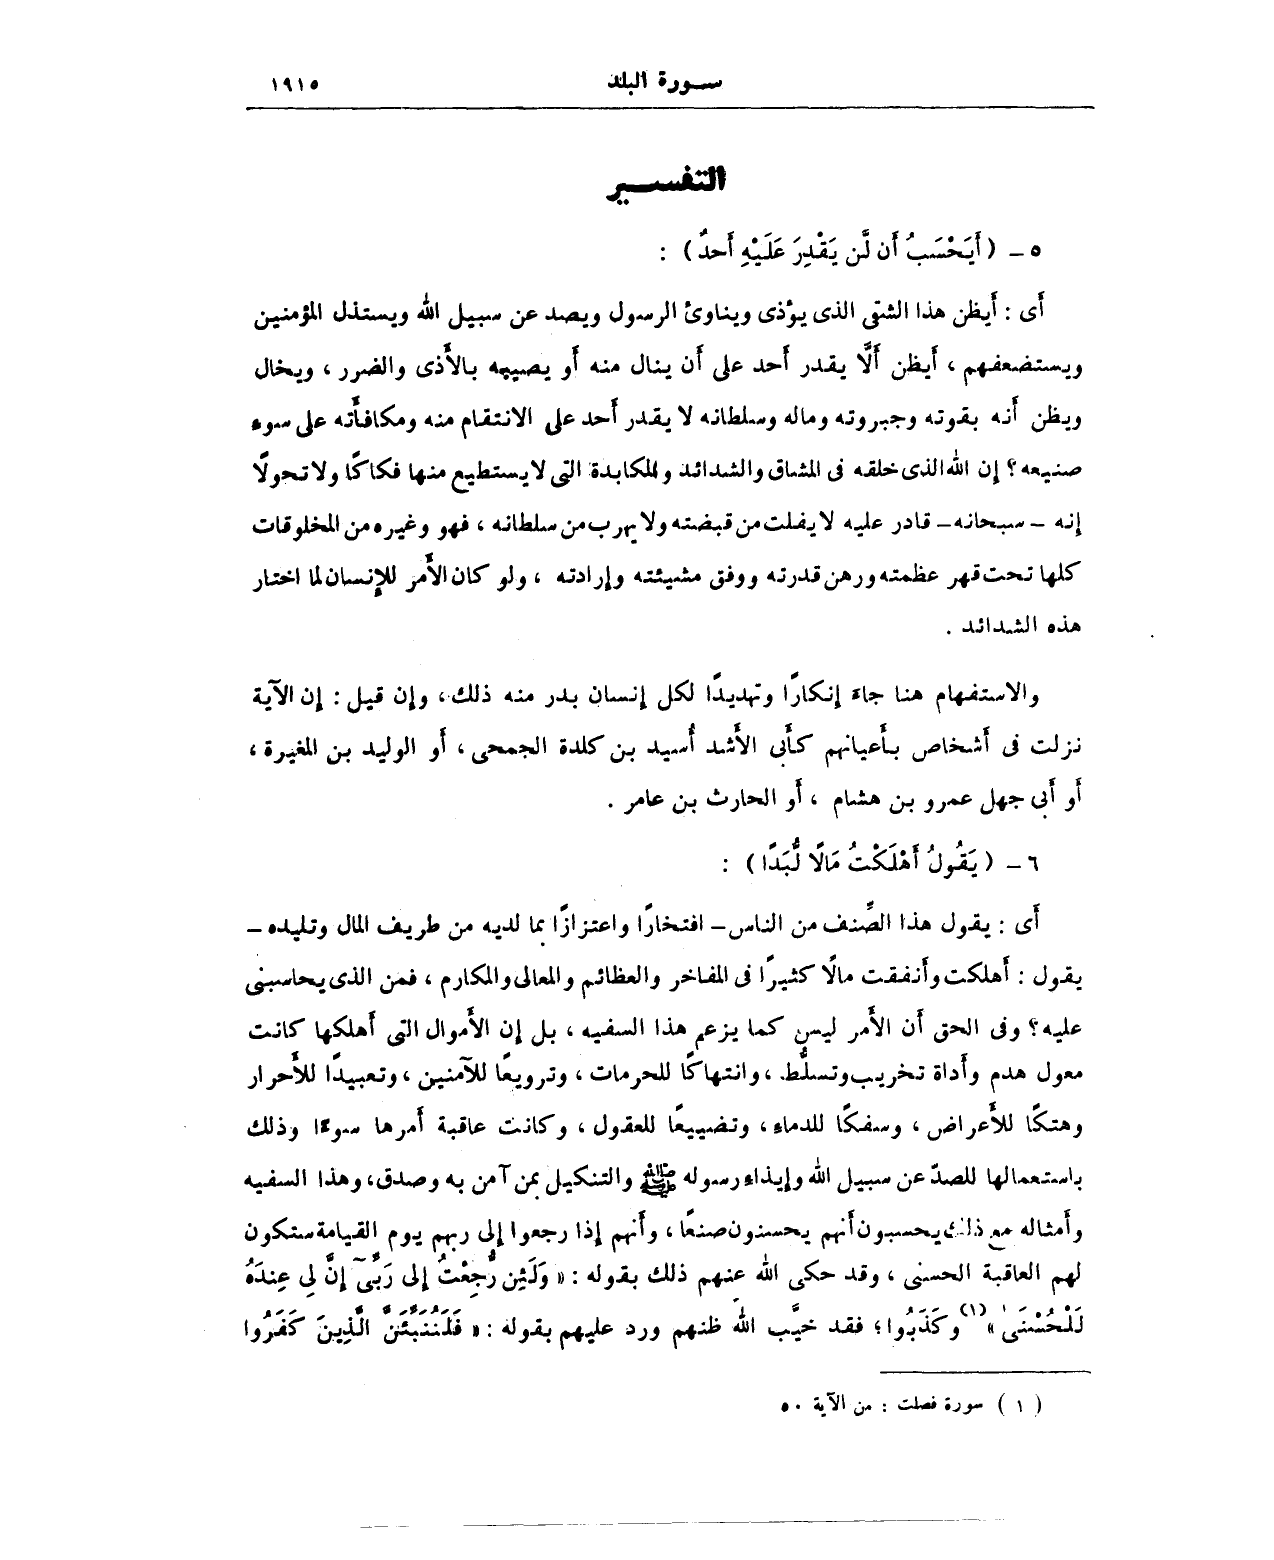 سورة البلد ١٩١٥
التفسير
٥ – ( أَيَحْسَبُ أَن لَّن يَقْدِرَ عَلَيْهِ أَحَدٌ ) :
أَى : أَيظن هذا الشقى الذى يؤذى ويناوئ الرسول ويصد عن سبيل الله ويستذل المؤمنين
ويستضعفهم ، أَيظن أَلَّا يقدر أَحد على أَن ينال منه أَو يصيبه بالأَذى والضرر ، ويخال
ويظن أَنه بقوته وجبروته وماله وسلطانه لا يقدر أَحد على الانتقام منه ومكافأَته على سوء
صنيعه؟ إن الله الذى خلقه فى المشاق والشدائد والمكابدة التى لا يستطيع منها فكاكًا ولا تحولًا
إنه – سبحانه – قادر عليه لا يفلت من قبضته ولا يهرب من سلطانه ، فهو وغيره من المخلوقات
كلها تحت قهر عظمته ورهن قدرته ووفق مشيئته وإرادته ، ولو كان الأَمر للإنسان لما اختار
هذه الشدائد .
والاستفهام هنا جاءَ إنكارًا وتهديدًا لكل إنسان بدر منه ذلك ، وإن قيل : إن الآية
نزلت فى أَشخاص بأَعيانهم كأَبى الأَشد أُسيد بن كلدة الجمحى ، أَو الوليد بن المغيرة ،
أَو أَبى جهل عمرو بن هشام ، أَو الحارث بن عامر .
٦ – ( يَقُولُ أَهْلَكْتُ مَالًا لُّبَدًا ) :
أَى : يقول هذا الصِّنف من الناس – افتخارًا واعتزازًا بما لديه من طريف المال وتليده –
يقول : أَهلكت وأَنفقت مالًا كثيرًا فى المفاخر والعظائم والمعالى والمكارم ، فمن الذى يحاسبنى
عليه؟ وفى الحق أَن الأَمر ليس كما يزعم هذا السفيه ، بل إن الأَموال التى أَهلكها كانت
معول هدم وأَداة تخريب وتسلُّط ، وانتهاكًا للحرمات ، وترويعًا للآمنين ، وتعبيدًا للأَحرار
وهتكًا للأَعراض ، وسفكًا للدماء ، وتضييعًا للعقول ، وكانت عاقبة أَمرها سوءًا وذلك
باستعمالها للصدّ عن سبيل الله وإيذاءِ رسوله ﷺ والتنكيل بمن آمن به وصدق ، وهذا السفيه
وأَمثاله مع ذلك يحسبون أَنهم يحسنون صنعًا ، وأَنهم إذا رجعوا إلى ربهم يوم القيامة ستكون
لهم العاقبة الحسنى ، وقد حكى الله عنهم ذلك بقوله : « وَلَئِن رُّجِعْتُ إِلَى رَبِّىٓ إِنَّ لِى عِندَهُ
لَلْحُسْنَىٰ » (١) وكَذَبُوا ؛ فقد خيَّب الله ظنهم ورد عليهم بقوله : « فَلَنُنَبِّئَنَّ الَّذِينَ كَفَرُوا
( ١ ) سورة فصلت : من الآية ٥٠